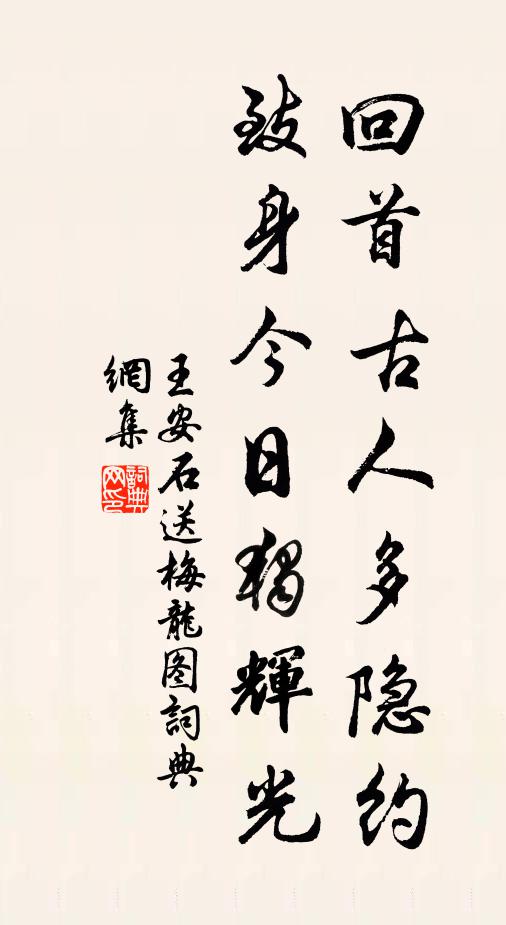 回首古人多隐约
致身今日獨輝光
王安石送梅龍图詞典
網集
詞典網印